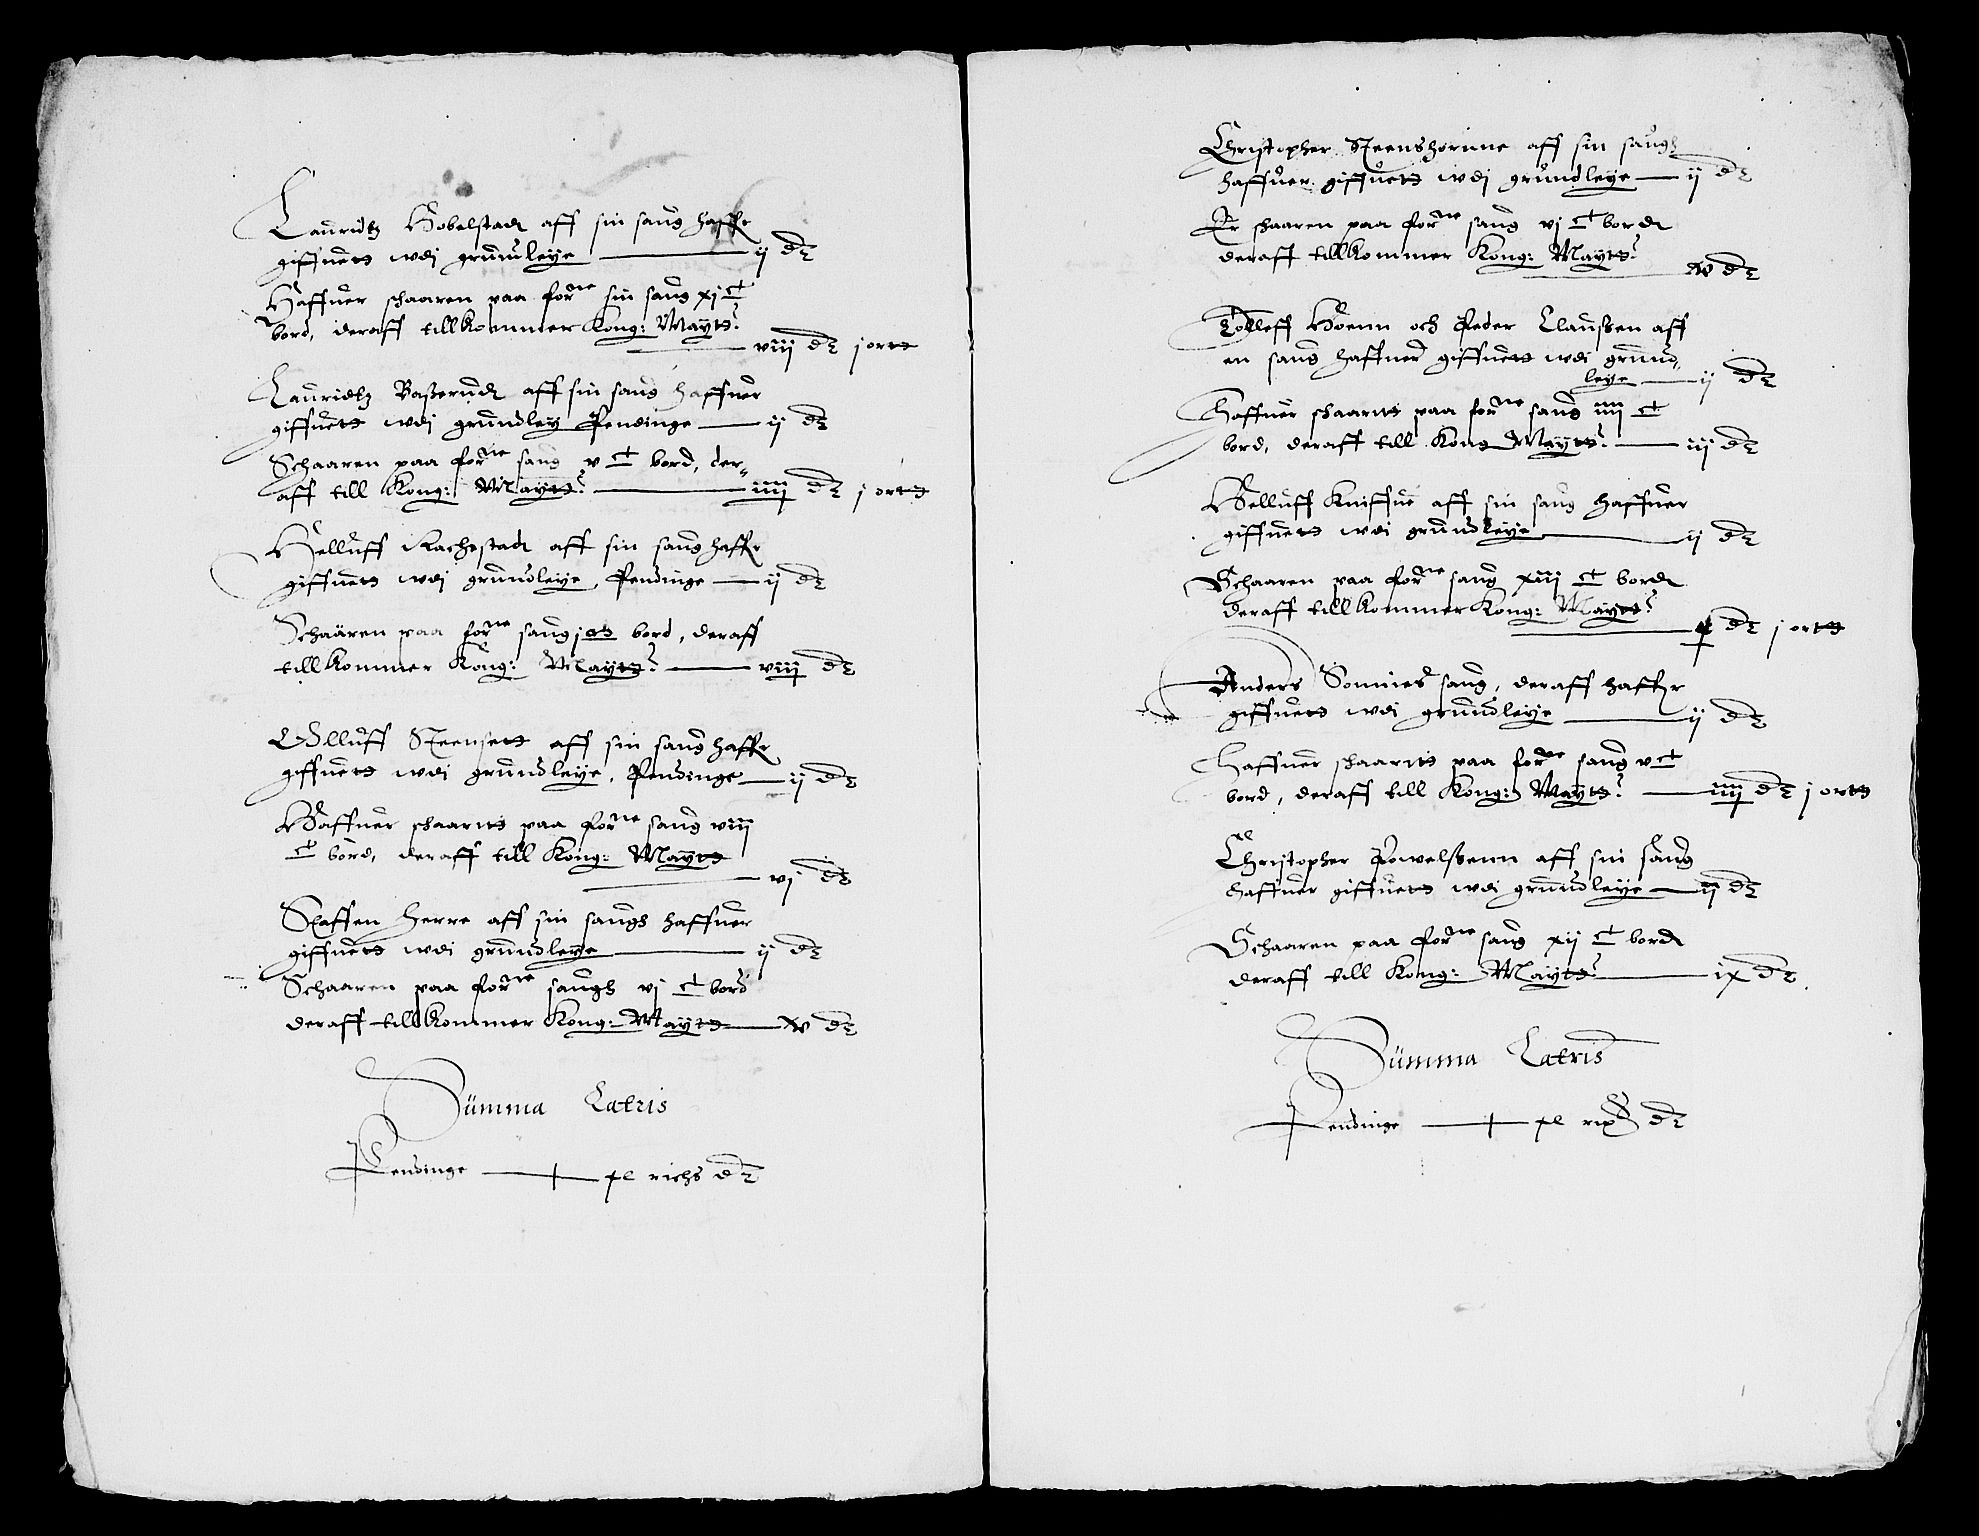 Lauridtz Hobelstadt aff sin saug haffr
giffuets udi grundleye — ij dr
Haffuer schaaren paa forne sin saug xj c
bord, deraff till kommer Kong: Maytt
— viij dr j ortt
Lauridtz aff sin saug haffuer
giffuets udi grundley Pendinge — ij dr
Schaaren paa forne saug v c bord, der-
aff till Kong: Maytt — iiij dr j ortt
Helluff Rachestadt aff sin saug haffr
giffuets udi grundleye, Pendinge — ij dr
Schaaren paa forne saug bord, deraff
till kommer Kong: Maytt — viij dr
Olluff Steensett aff sin saug haffr
giffuets udi grundleye, Pendinge — ij dr
Haffuer schaarits paa forne saug viij
c bord, deraff till Kong: Maytt
— vj dr
Staffen Herre aff sin saugh haffuer
giffuets udi grundleye — ij dr
Schaaren paa forne saugh vj c bord
deraff till kommer Kong: Maytt — dr
Summa Latris
Pendinge — xl richs dr
Christopher Steenshornne aff sin saugh
haffuer giffuets udi grundleye — ij dr
Er schaaren paa forne saug vj c bord
deraff till kommer Kong: Maytt
— dr
Tolleff Hoenn och Peder Claussen aff
en saug haffuer giffuets udi grund-
leye — ij dr
Haffuer schaarits paa forne saug iiij c
bord, deraff till Kong Maytt — iij dr
Helluff Kniffue aff sin saug haffuer
giffuets udi grundleye — ij dr
Schaaren paa forne saug xiij c bord
deraff till kommer Kong: Maytt
— dr j ortt
Anders Sonnes saug, deraff haffr
giffuets udi grundleye — ij dr
Haffuer schaarits paa forne saug v c
bord, deraff till Kong: Maytt — iiij dr j ortt
Christopher Powelssenn aff sin saug
haffuer giffuets udi grundleye — ij dr
Schaaren paa forne saug xij c bord
deraff till Kong: Maytt — ix dr
Summa Latris
Pendinge — xl rix dr